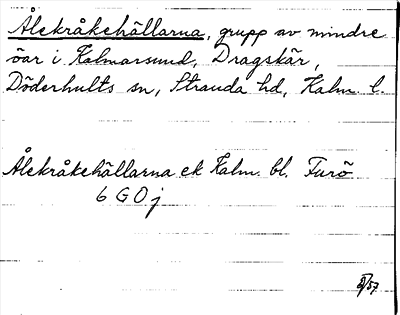 Ålekråkehällarna, grupp av mindre
öar i Kalmarsund, Dragskär,
Döderhults sn, Stranda hd, Kalm. l.
Ålekråkehällarna ek Kalm. bl. Furö
6 G 0 j